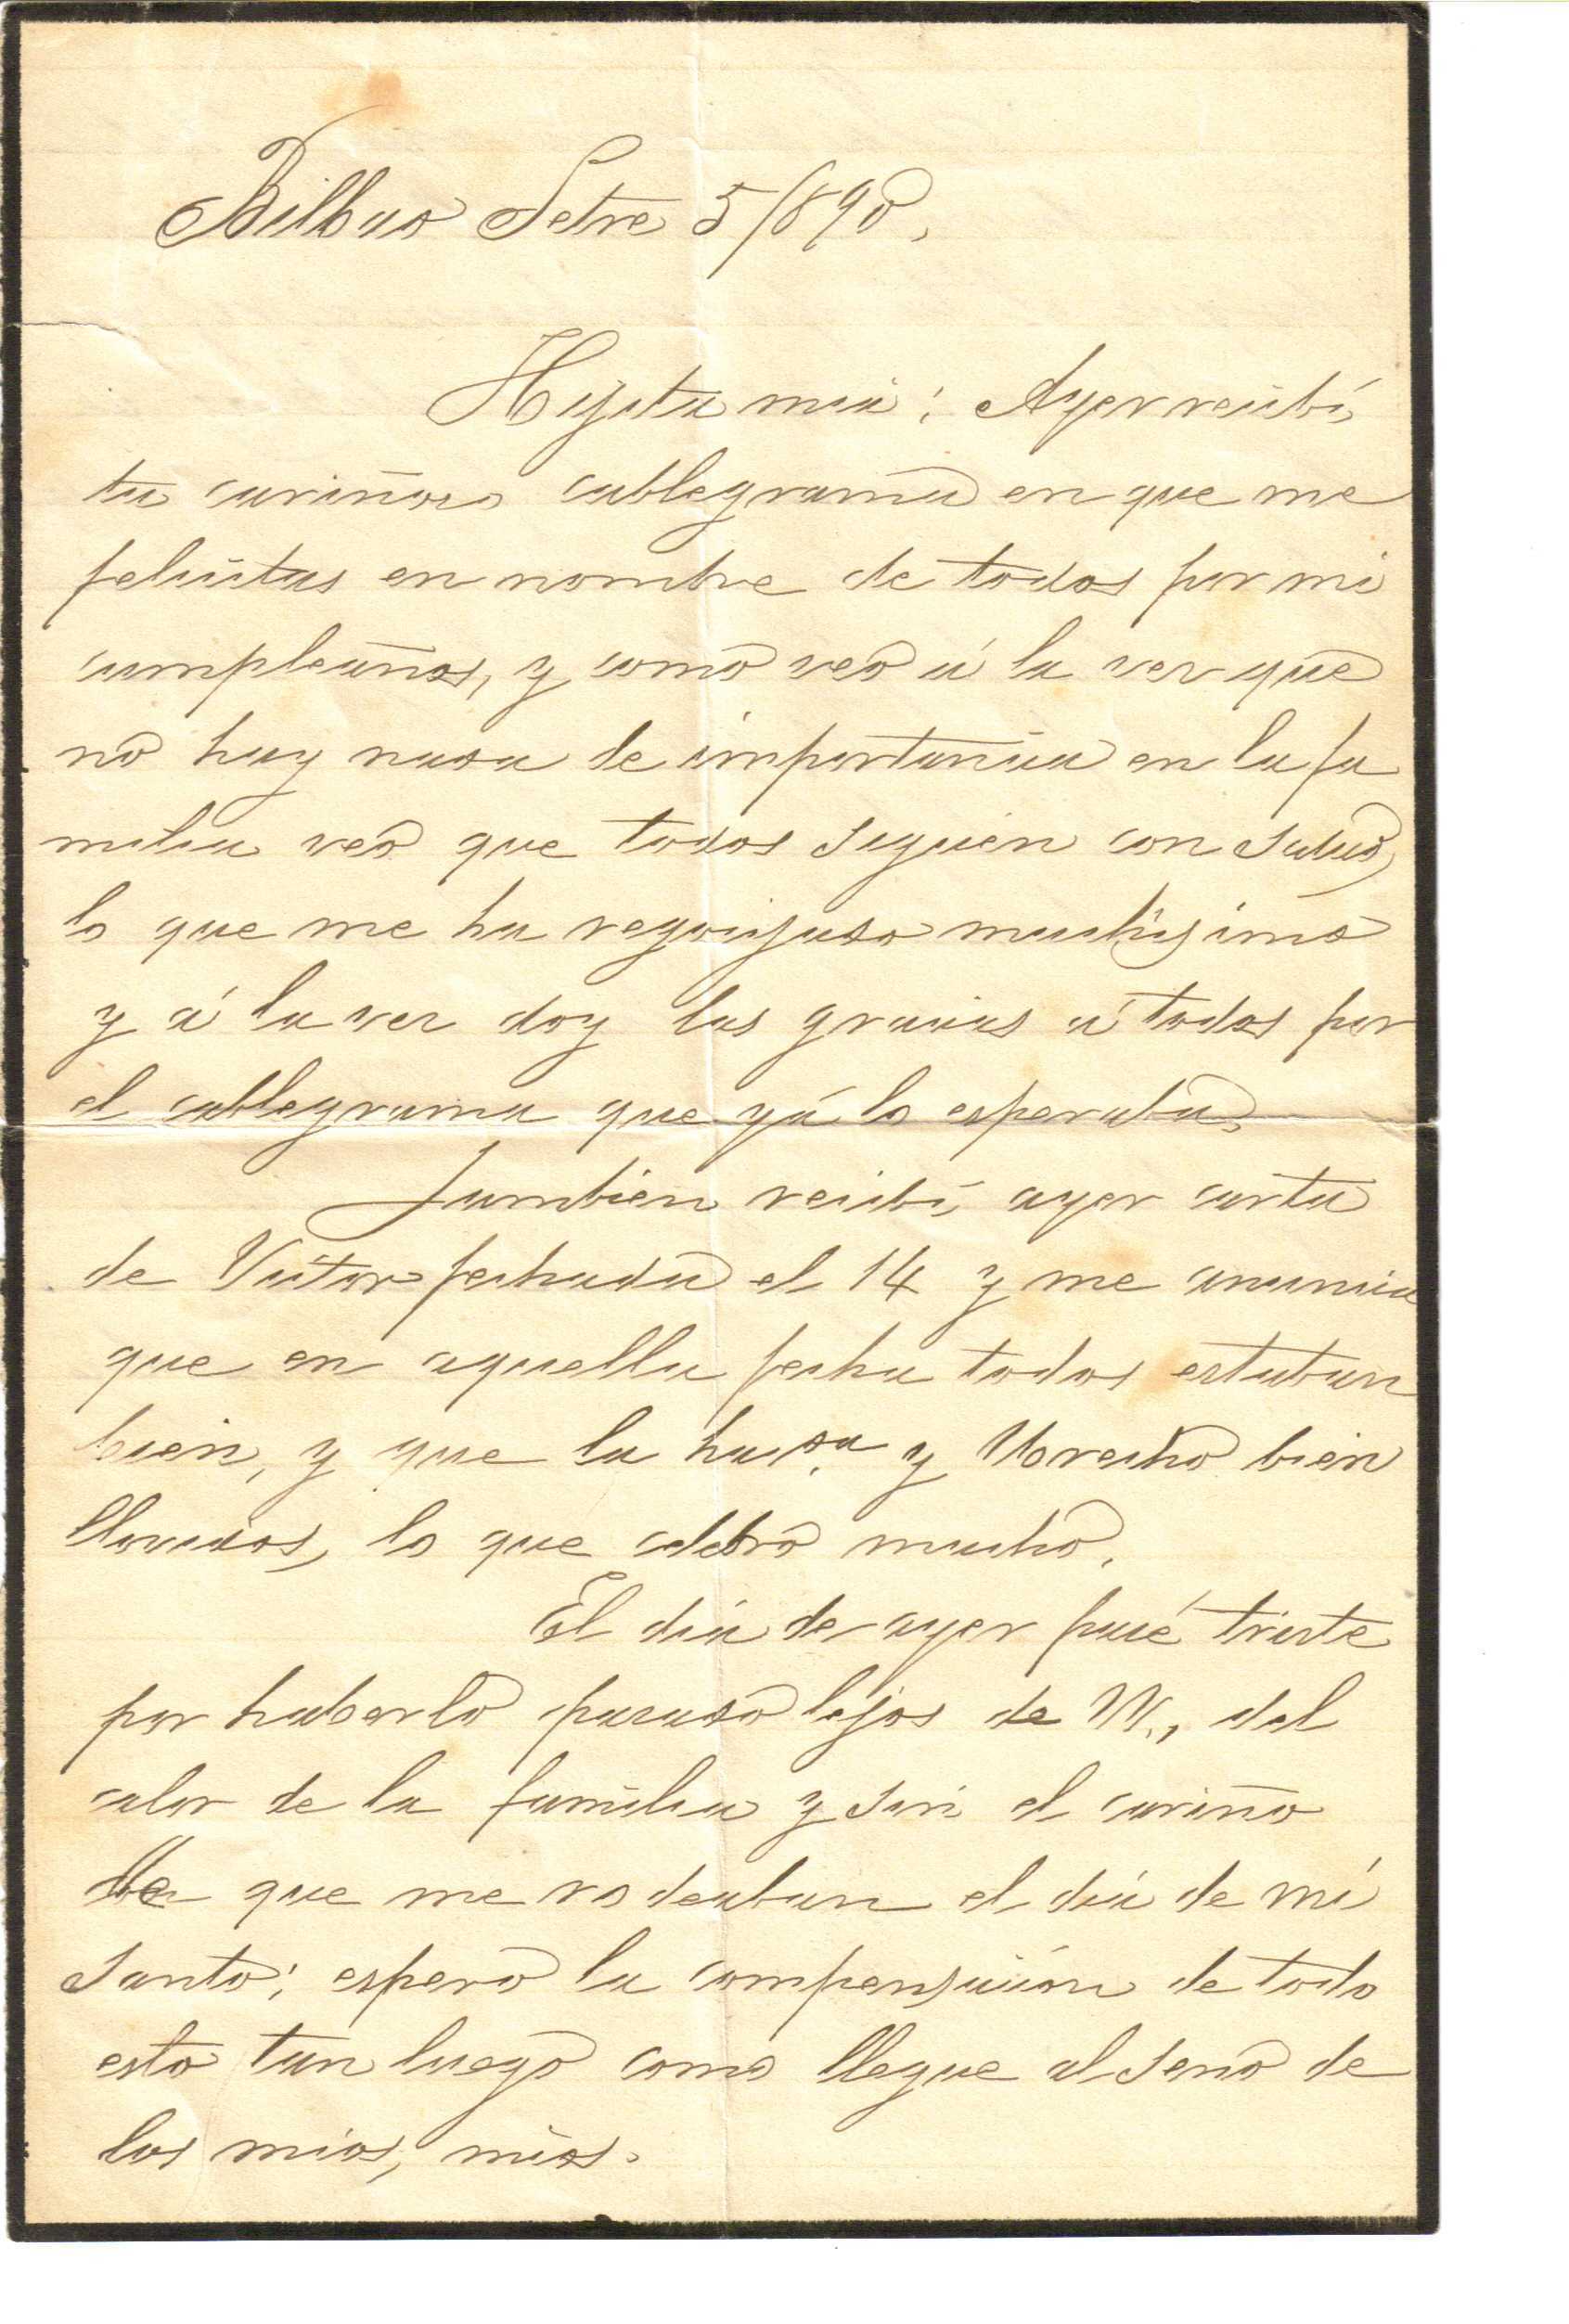 Bilbao Setre 5/890,
Hijita mia: Ayer recibí
tu cariñoso cablegrama en que me
felicitas en nombre de todos por mi
cumpleaños, y como veo á la vez que
no hay nada de importancia en la fa
milia veo que todos siguen con salud,
lo que me ha regocijado muchísimo
y á la vez doy las gracias á todos por
el cablegrama que yá lo esperaba.
Tambien recibí ayer carta
de Victor fechada el 14 y me anuncia
que en aquella fecha todos estaban
bien, y que la hacda y Urecho bien
llovidos, lo que celebro mucho.
El día de ayer fué triste
por haberlo pasado lejos de VV., del
calor de la familia y sin el cariño
de que me rodeaban el día de mi
Santo; espero la compensación de todo
esto tan luego como llegue al seno de
los mios, mios.